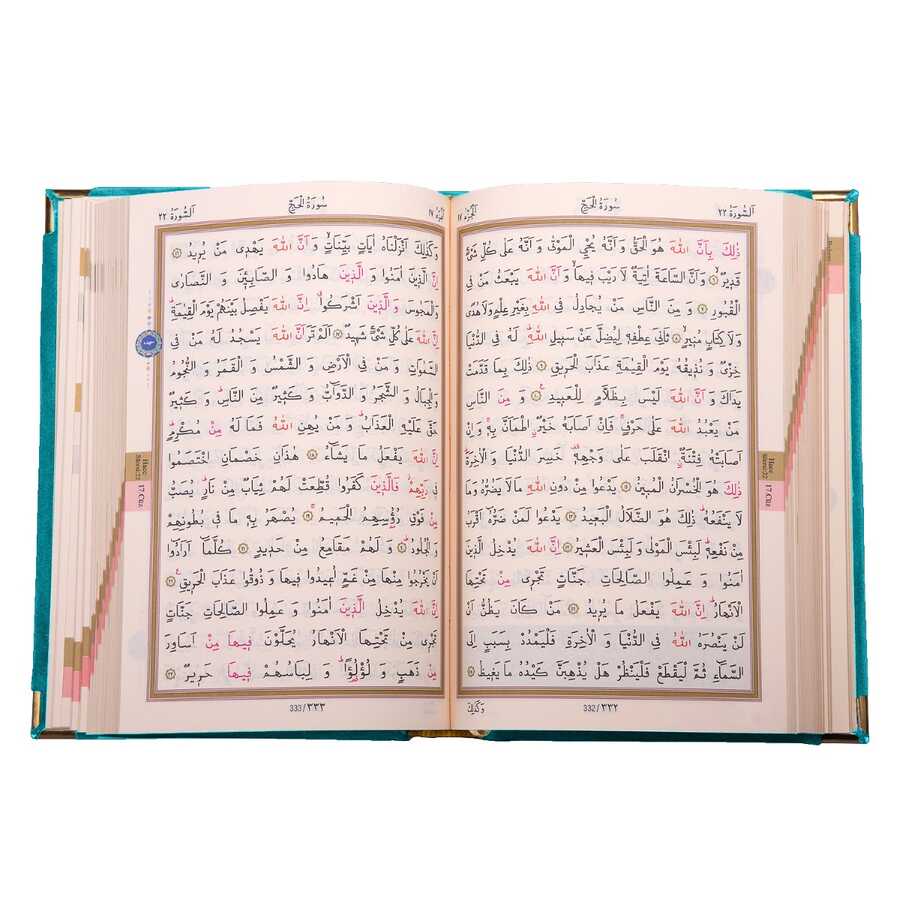 اَلسُّورَةُ ٢٢
سُورَةُ الْحَجِّ
اَلْجُزْءُ ١٧
ذٰلِكَ بِاَنَّ اللّٰهَ هُوَ الْحَقُّ وَاَنَّهُ يُحْيِ الْمَوْتٰى وَاَنَّهُ عَلٰى كُلِّ شَيْءٍ
قَدٖيرٌ ﴿٦﴾ وَاَنَّ السَّاعَةَ اٰتِيَةٌ لَا رَيْبَ فٖيهَا وَاَنَّ اللّٰهَ يَبْعَثُ مَنْ فِي
الْقُبُورِ ﴿٧﴾ وَ مِنَ النَّاسِ مَنْ يُجَادِلُ فِي اللّٰهِ بِغَيْرِ عِلْمٍ وَلَا هُدًى
وَلَا كِتَابٍ مُنٖيرٍ ﴿٨﴾ ثَانِيَ عِطْفِهٖ لِيُضِلَّ عَنْ سَبٖيلِ اللّٰهِ لَهُ فِي الدُّنْيَا
خِزْيٌ وَ نُذٖيقُهُ يَوْمَ الْقِيٰمَةِ عَذَابَ الْحَرٖيقِ ﴿٩﴾ ذٰلِكَ بِمَا قَدَّمَتْ
يَدَاكَ وَ اَنَّ اللّٰهَ لَيْسَ بِظَلَّامٍ لِلْعَبٖيدِ ﴿١٠﴾ وَ مِنَ النَّاسِ
مَنْ يَعْبُدُ اللّٰهَ عَلٰى حَرْفٍ فَاِنْ اَصَابَهُ خَيْرٌ اطْمَاَنَّ بِهٖ وَاِنْ
اَصَابَتْهُ فِتْنَةٌ انْقَلَبَ عَلٰى وَجْهِهٖ خَسِرَ الدُّنْيَا وَ الْاٰخِرَةَ
ذٰلِكَ هُوَ الْخُسْرَانُ الْمُبٖينُ ﴿١١﴾ يَدْعُوا مِنْ دُونِ اللّٰهِ مَا لَا يَضُرُّهُ وَمَا
لَا يَنْفَعُهُ ذٰلِكَ هُوَ الضَّلَالُ الْبَعٖيدُ ﴿١٢﴾ يَدْعُوا لَمَنْ ضَرُّهُ اَقْرَبُ
مِنْ نَفْعِهٖ لَبِئْسَ الْمَوْلٰى وَ لَبِئْسَ الْعَشٖيرُ ﴿١٣﴾ اِنَّ اللّٰهَ يُدْخِلُ الَّذٖينَ
اٰمَنُوا وَ عَمِلُوا الصَّالِحَاتِ جَنَّاتٍ تَجْرٖي مِنْ تَحْتِهَا
الْاَنْهَارُ اِنَّ اللّٰهَ يَفْعَلُ مَا يُرٖيدُ ﴿١٤﴾ مَنْ كَانَ يَظُنُّ اَنْ
لَنْ يَنْصُرَهُ اللّٰهُ فِي الدُّنْيَا وَ الْاٰخِرَةِ فَلْيَمْدُدْ بِسَبَبٍ اِلَى
السَّمَاءِ ثُمَّ لْيَقْطَعْ فَلْيَنْظُرْ هَلْ يُذْهِبَنَّ كَيْدُهُ مَا يَغٖيظُ ﴿١٥﴾
332/٣٣٢
وَكَذٰلِكَ
Hacc
Sûresi:22
17.Cüz
اَلسُّورَةُ ٢٢
سُورَةُ الْحَجِّ
اَلْجُزْءُ ١٧
وَكَذٰلِكَ اَنْزَلْنَاهُ اٰيَاتٍ بَيِّنَاتٍ وَ اَنَّ اللّٰهَ يَهْدٖي مَنْ يُرٖيدُ ﴿١٦﴾
اِنَّ الَّذٖينَ اٰمَنُوا وَ الَّذٖينَ هَادُوا وَ الصَّابِـٖٔينَ وَ النَّصَارٰى
وَالْمَجُوسَ وَ الَّذٖينَ اَشْرَكُوا اِنَّ اللّٰهَ يَفْصِلُ بَيْنَهُمْ يَوْمَ الْقِيٰمَةِ
اِنَّ اللّٰهَ عَلٰى كُلِّ شَيْءٍ شَهٖيدٌ ﴿١٧﴾ اَلَمْ تَرَ اَنَّ اللّٰهَ يَسْجُدُ لَهُ مَنْ فِي
السَّمٰوَاتِ وَ مَنْ فِي الْاَرْضِ وَ الشَّمْسُ وَ الْقَمَرُ وَ النُّجُومُ
وَالْجِبَالُ وَ الشَّجَرُ وَ الدَّوَابُّ وَ كَثٖيرٌ مِنَ النَّاسِ وَ كَثٖيرٌ
حَقَّ عَلَيْهِ الْعَذَابُ وَ مَنْ يُهِنِ اللّٰهُ فَمَا لَهُ مِنْ مُكْرِمٍ
اِنَّ اللّٰهَ يَفْعَلُ مَا يَشَاءُ ﴿١٨﴾ هٰذَانِ خَصْمَانِ اخْتَصَمُوا
فٖي رَبِّهِمْ فَالَّذٖينَ كَفَرُوا قُطِّعَتْ لَهُمْ ثِيَابٌ مِنْ نَارٍ يُصَبُّ
مِنْ فَوْقِ رُؤُسِهِمُ الْحَمٖيمُ ﴿١٩﴾ يُصْهَرُ بِهٖ مَا فٖي بُطُونِهِمْ
وَالْجُلُودُ ﴿٢٠﴾ وَ لَهُمْ مَقَامِعُ مِنْ حَدٖيدٍ ﴿٢١﴾ كُلَّمَا اَرَادُوا
اَنْ يَخْرُجُوا مِنْهَا مِنْ غَمٍّ اُعٖيدُوا فٖيهَا وَ ذُوقُوا عَذَابَ الْحَرٖيقِ ﴿٢٢﴾
اِنَّ اللّٰهَ يُدْخِلُ الَّذٖينَ اٰمَنُوا وَ عَمِلُوا الصَّالِحَاتِ جَنَّاتٍ
تَجْرٖي مِنْ تَحْتِهَا الْاَنْهَارُ يُحَلَّوْنَ فٖيهَا مِنْ اَسَاوِرَ
مِنْ ذَهَبٍ وَ لُؤْلُؤًا وَ لِبَاسُهُمْ فٖيهَا حَرٖيرٌ ﴿٢٣﴾
333/٣٣٣
Hacc
Sûresi:22
17.Cüz